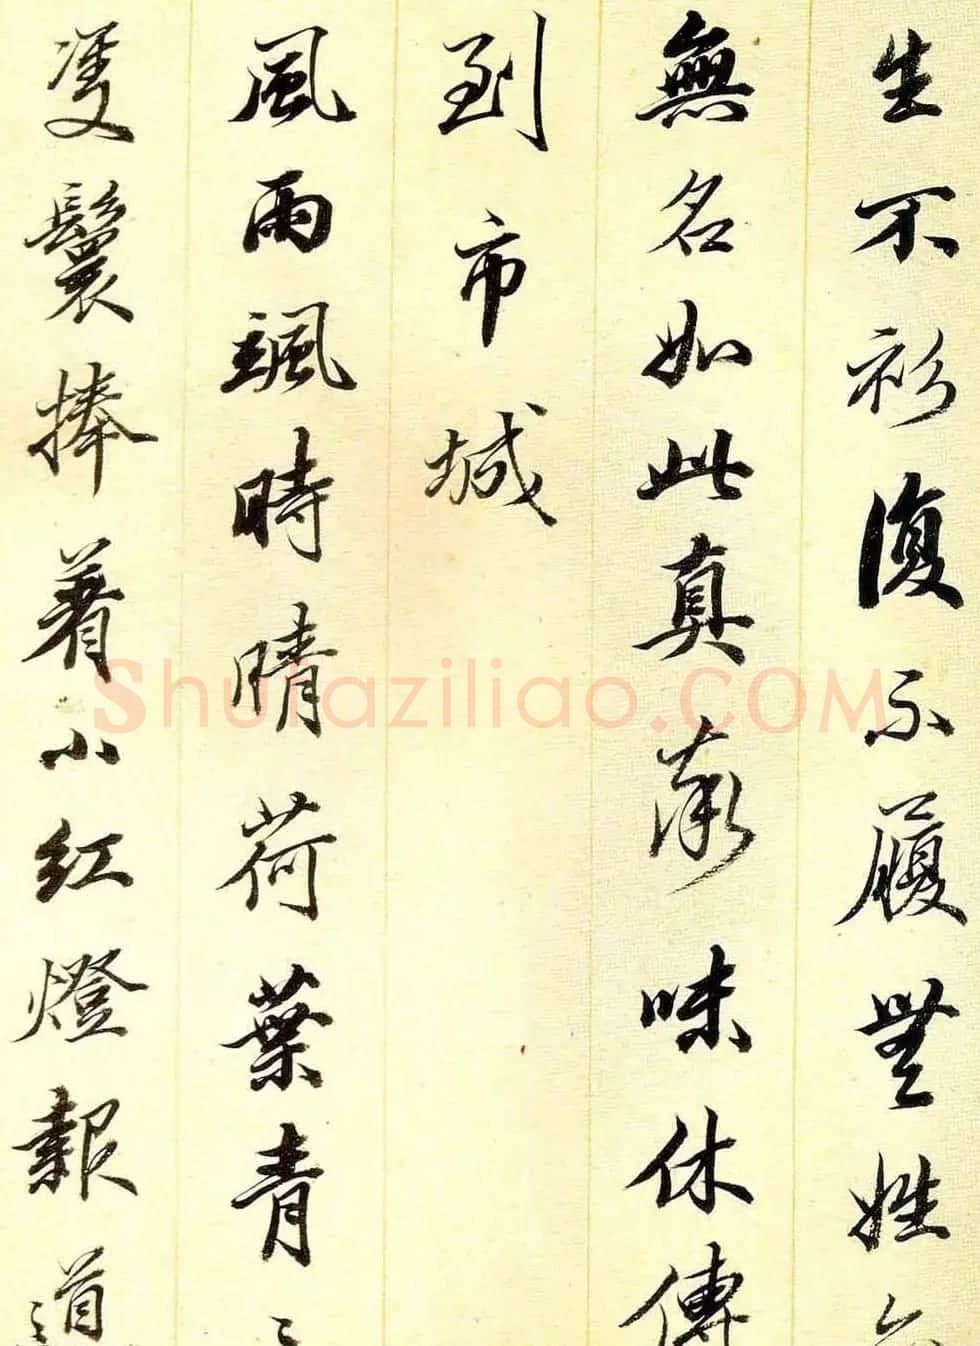 生不衫復不履無姓
無名如此真率味休傳
到市城
風雨颯時晴荷葉青々
雙鬟捧着小紅燈報道
Shufaziliao.COM